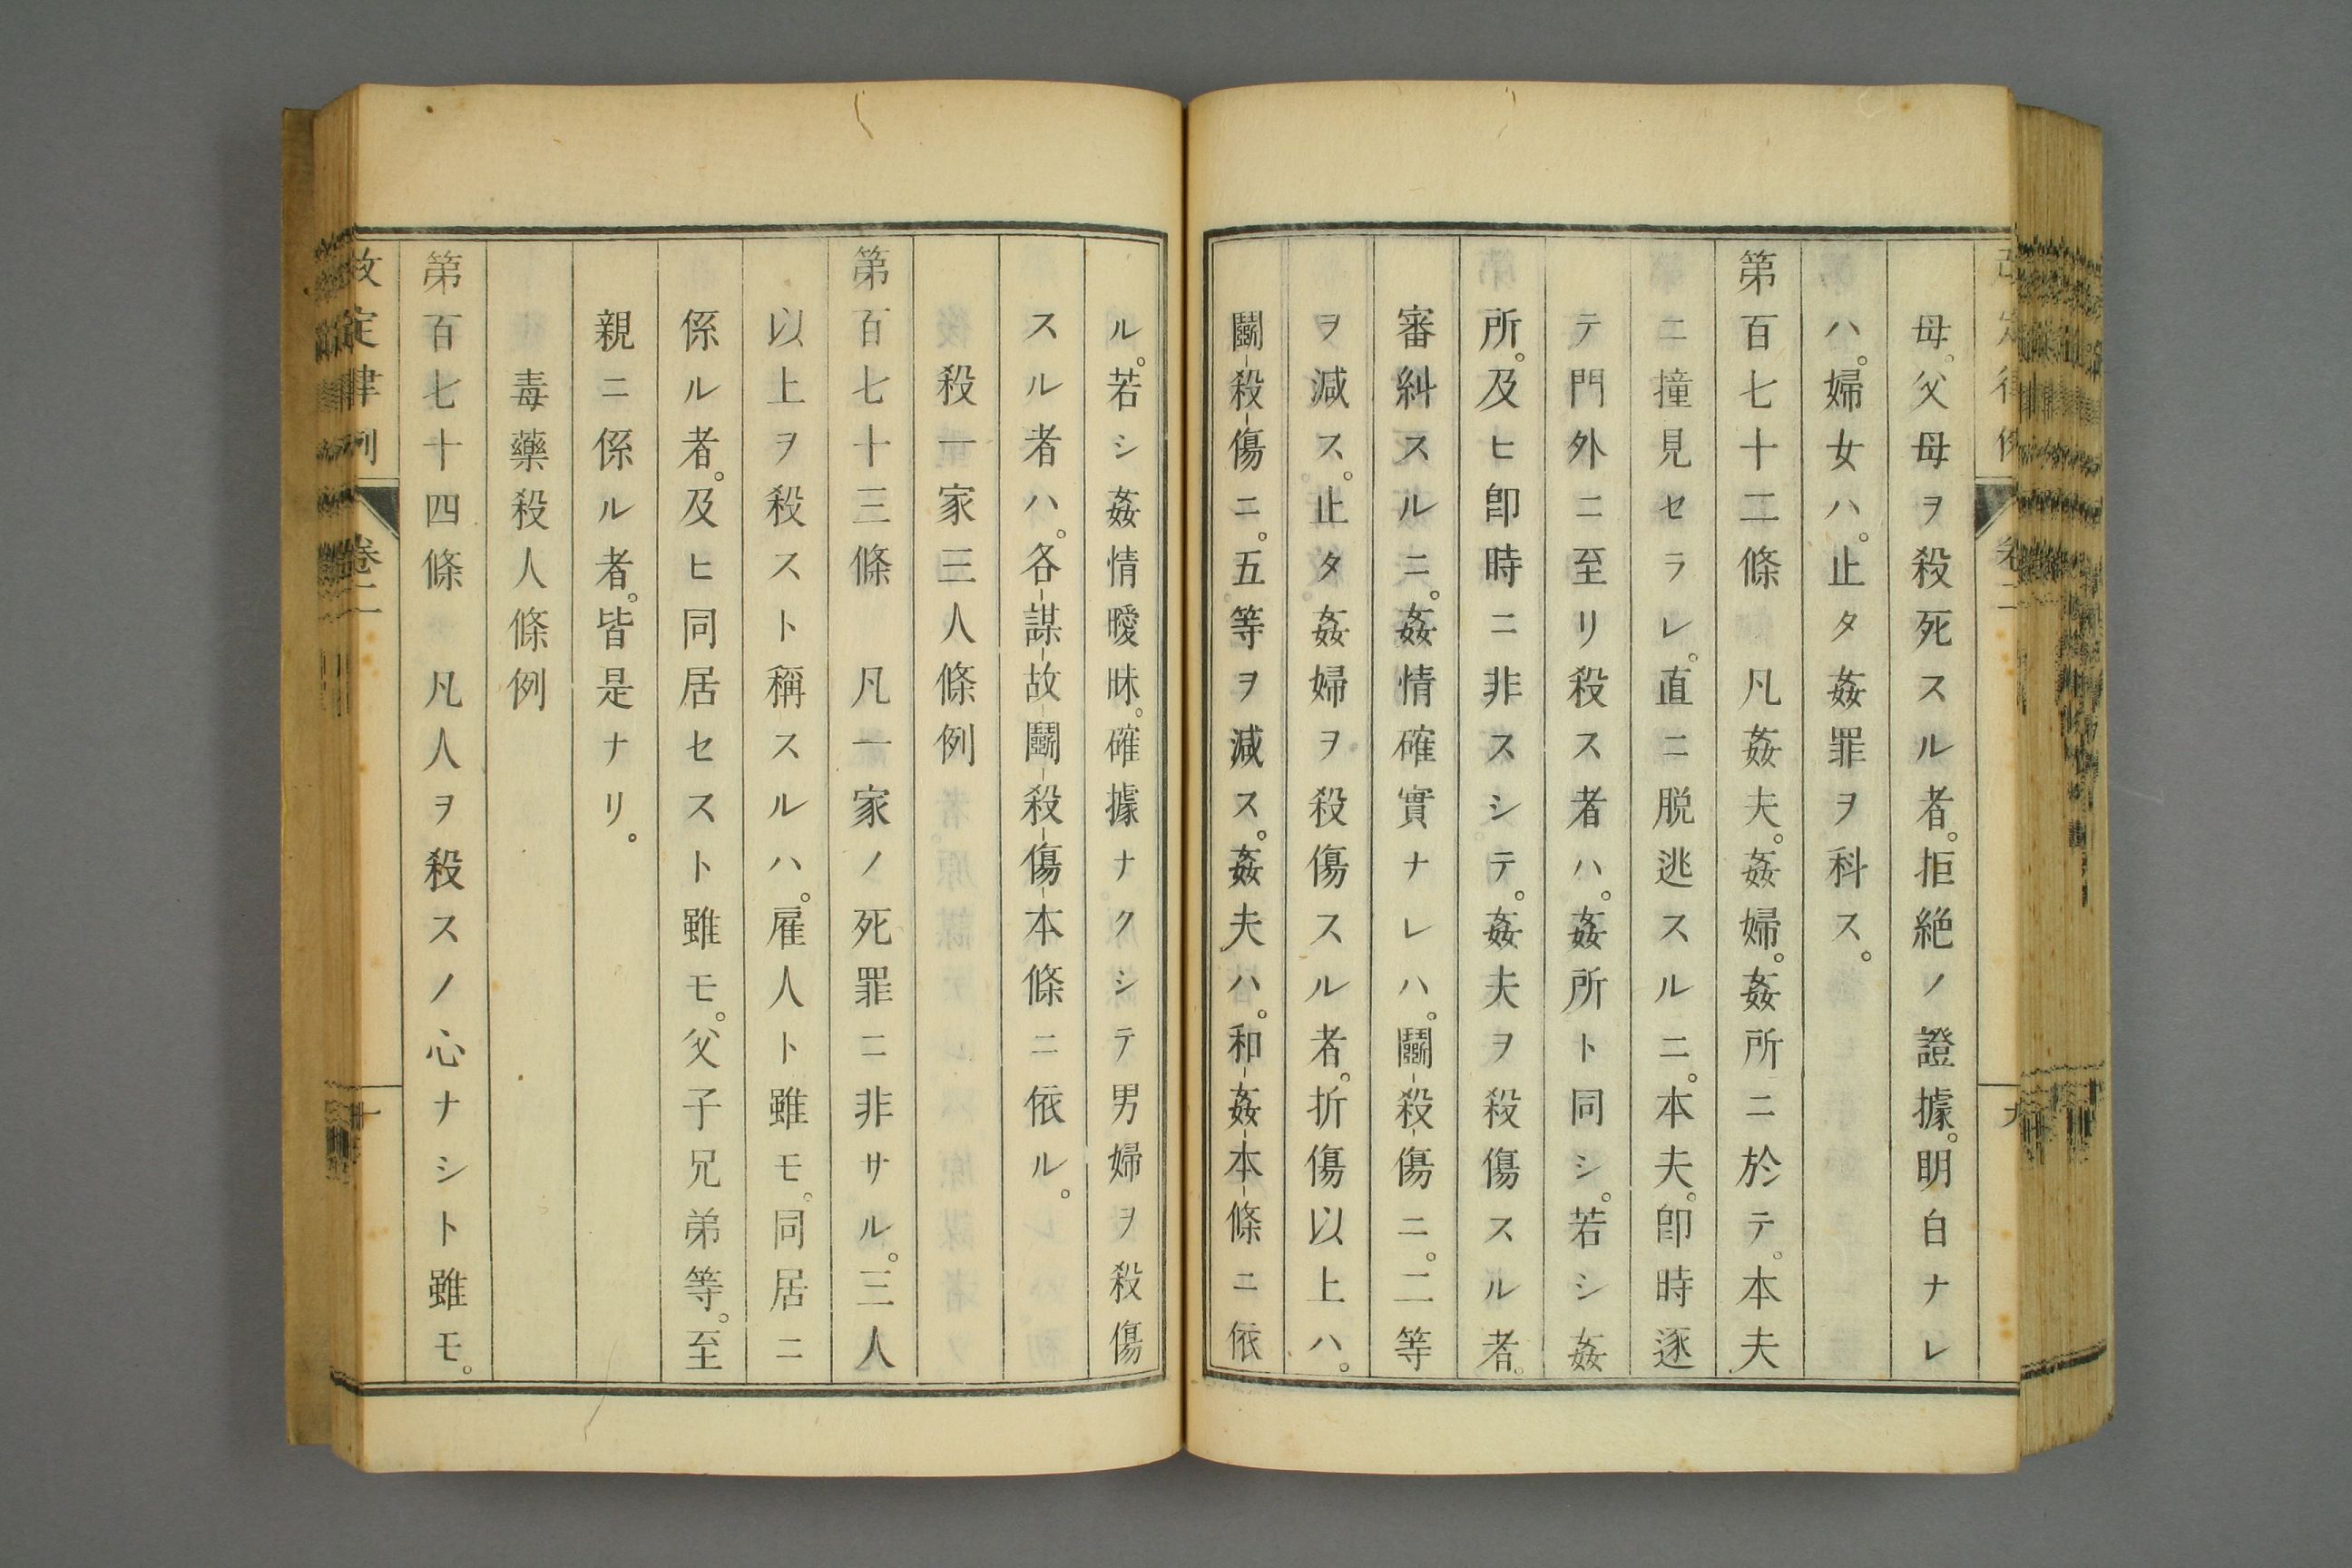 母。父母ヲ殺死スル者。拒絶ノ證據。明白ナレ
ハ。婦女ハ。止タ姦罪ヲ科ス。
第百七十二條　凡姦夫。姦婦。姦所ニ於テ。本夫
ニ撞見セラレ。直ニ脱逃スルニ。本夫。卽時逐
テ門外ニ至リ殺ス者ハ。姦所ト同シ。若シ姦
所。及ヒ卽時ニ非スシテ。姦夫ヲ殺傷スル者。
審糾スルニ。姦情確實ナレハ。鬭殺傷ニ。二等
ヲ減ス。止タ姦婦ヲ殺傷スル者。折傷以上ハ。
鬭殺傷ニ。五等ヲ減ス。姦夫ハ。和姦本條ニ依
ル。若シ姦情曖昧。確據ナクシテ男婦ヲ殺傷
スル者ハ。各謀故鬭殺傷本條ニ依ル。
殺一家三人條例
第百七十三條　凡一家ノ死罪ニ非サル。三人
以上ヲ殺スト稱スルハ。雇人ト雖モ。同居ニ
係ル者。及ヒ同居セスト雖モ。父子兄弟等。至
親ニ係ル者。皆是ナリ。
毒藥殺人條例
第百七十四條　凡人ヲ殺スノ心ナシト雖モ。
改定律例　卷二　十